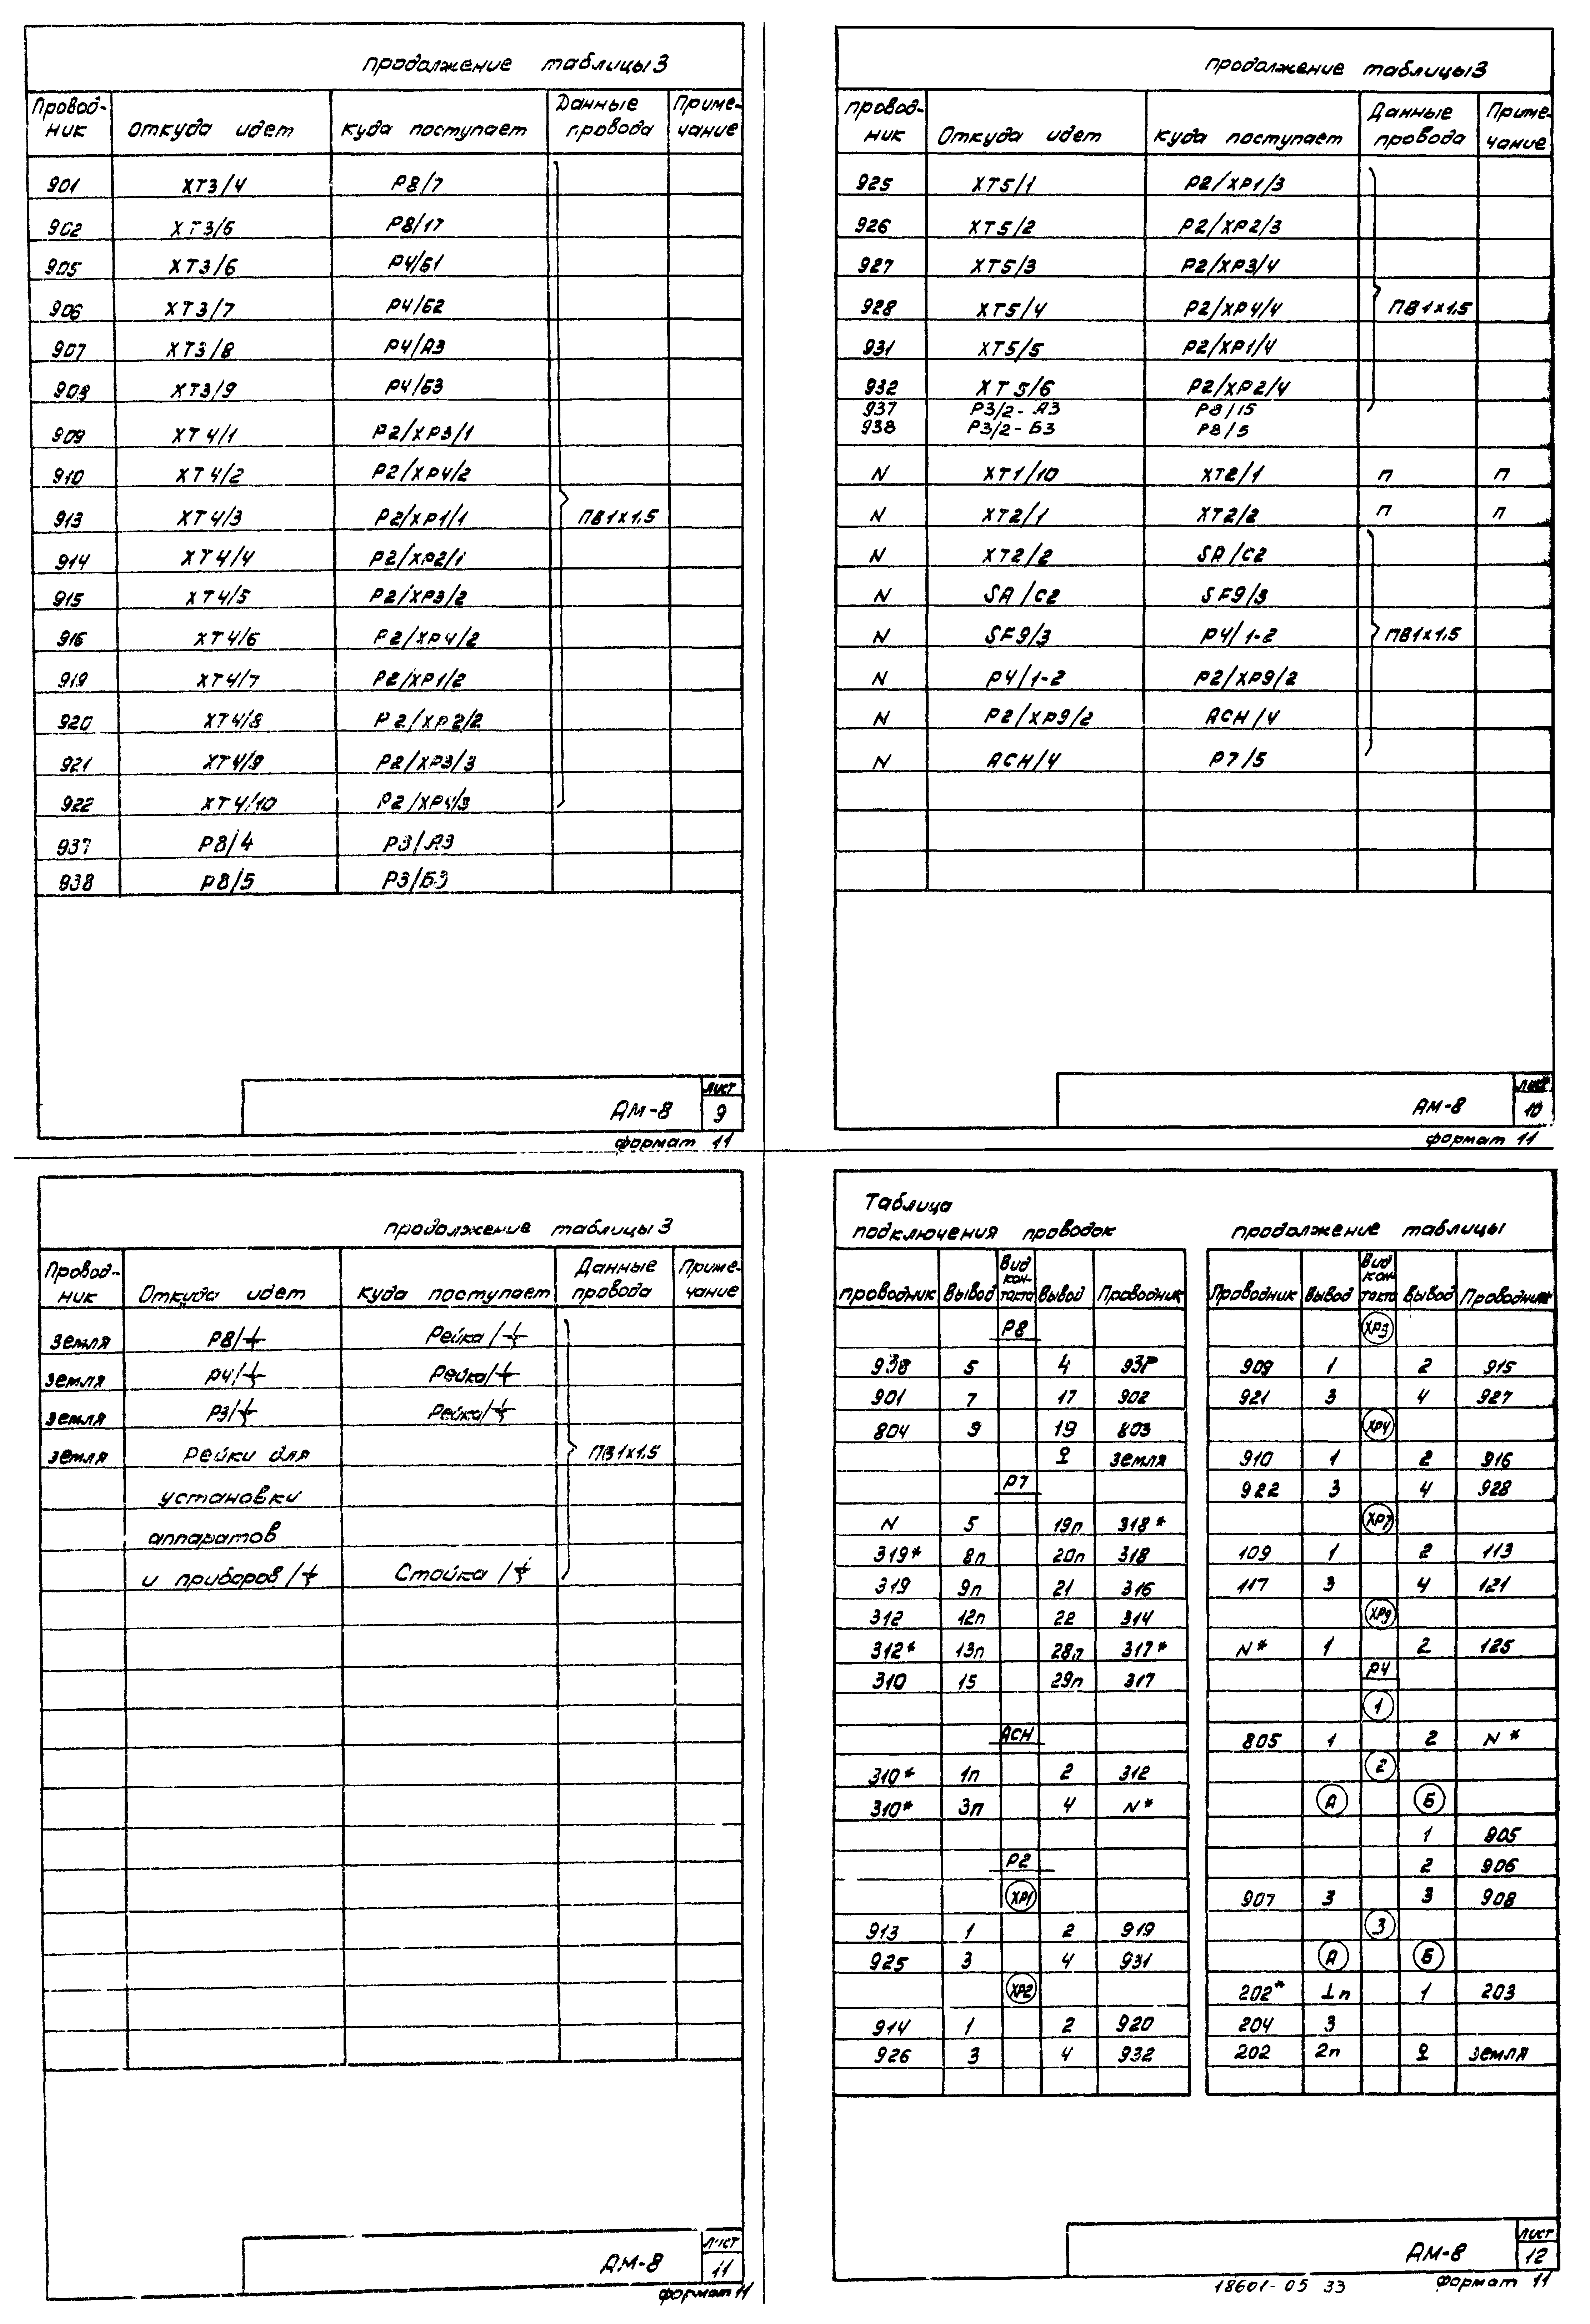 продолжение таблицы 3
Провод-ник Откуда идет куда поступает Данные провода Приме-чание
901 ХТ3/4 Р8/7
902 ХТ3/5 Р8/17
905 ХТ3/6 Р4/Б1
906 ХТ3/7 Р4/Б2
907 ХТ3/8 Р4/А3
908 ХТ3/9 Р4/Б3
909 ХТ4/1 Р2/ХР3/1
910 ХТ4/2 Р2/ХР4/2
913 ХТ4/3 Р2/ХР1/1 ПВ1х1,5
914 ХТ4/4 Р2/ХР2/1
915 ХТ4/5 Р2/ХР3/2
916 ХТ4/6 Р2/ХР4/2
919 ХТ4/7 Р2/ХР1/2
920 ХТ4/8 Р2/ХР2/2
921 ХТ4/9 Р2/ХР3/3
922 ХТ4/10 Р2/ХР4/3
937 Р8/4 Р3/А3
938 Р8/5 Р3/Б3
АМ-8 лист 9
формат 11
продолжение таблицы 3
провод-ник Откуда идет куда поступает Данные провода Приме-чание
925 ХТ5/1 Р2/ХР1/3
926 ХТ5/2 Р2/ХР2/3
927 ХТ5/3 Р2/ХР3/4
928 ХТ5/4 Р2/ХР4/4 ПВ1х1,5
931 ХТ5/5 Р2/ХР1/4
932 ХТ5/6 Р2/ХР2/4
937 Р3/2-А3 Р8/15
938 Р3/2-Б3 Р8/5
N ХТ1/10 ХТ2/1 п п
N ХТ2/1 ХТ2/2 п п
N ХТ2/2 SA/C2
N SA/C2 SF9/3
N SF9/3 Р4/1-2 ПВ1х1,5
N Р4/1-2 Р2/ХР9/2
N Р2/ХР9/2 АСН/4
N АСН/4 Р7/5
АМ-8 лист 10
формат 11
продолжение таблицы 3
Провод-ник Откуда идет куда поступает Данные провода Приме-чание
земля Р8/⏚ Рейка/⏚
земля Р4/⏚ Рейка/⏚
земля Р3/⏚ Рейка/⏚
земля Рейки для ПВ1х1,5
установки
аппаратов
и приборов/⏚ Стойка/⏚
АМ-8 лист 11
формат 11
Таблица
подключения проводок
проводник Вывод Вид кон-такта Вывод Проводник
Р8
938 5 4 937
901 7 17 902
804 9 19 803
земля
Р7
N 5 19п 318*
319* 8п 20п 318
319 9п 21 316
312 12п 22 314
312* 13п 28п 317*
310 15 29п 317
АСН
310* 1п 2 312
310* 3п 4 N*
Р2
ХР1
913 1 2 919
925 3 4 931
ХР2
914 1 2 920
926 3 4 932
продолжение таблицы
Проводник Вывод Вид кон-такта Вывод Проводник
ХР3
909 1 2 915
921 3 4 927
ХР4
910 1 2 916
922 3 4 928
ХР7
109 1 2 113
117 3 4 121
ХР9
N* 1 2 125
Р4
1
805 1 2 N*
2
А Б
1 905
2 906
907 3 3 908
3
А Б
202* 1п 1 203
204 3
202 2п земля
АМ-8 лист 12
18601-05 33 формат 11